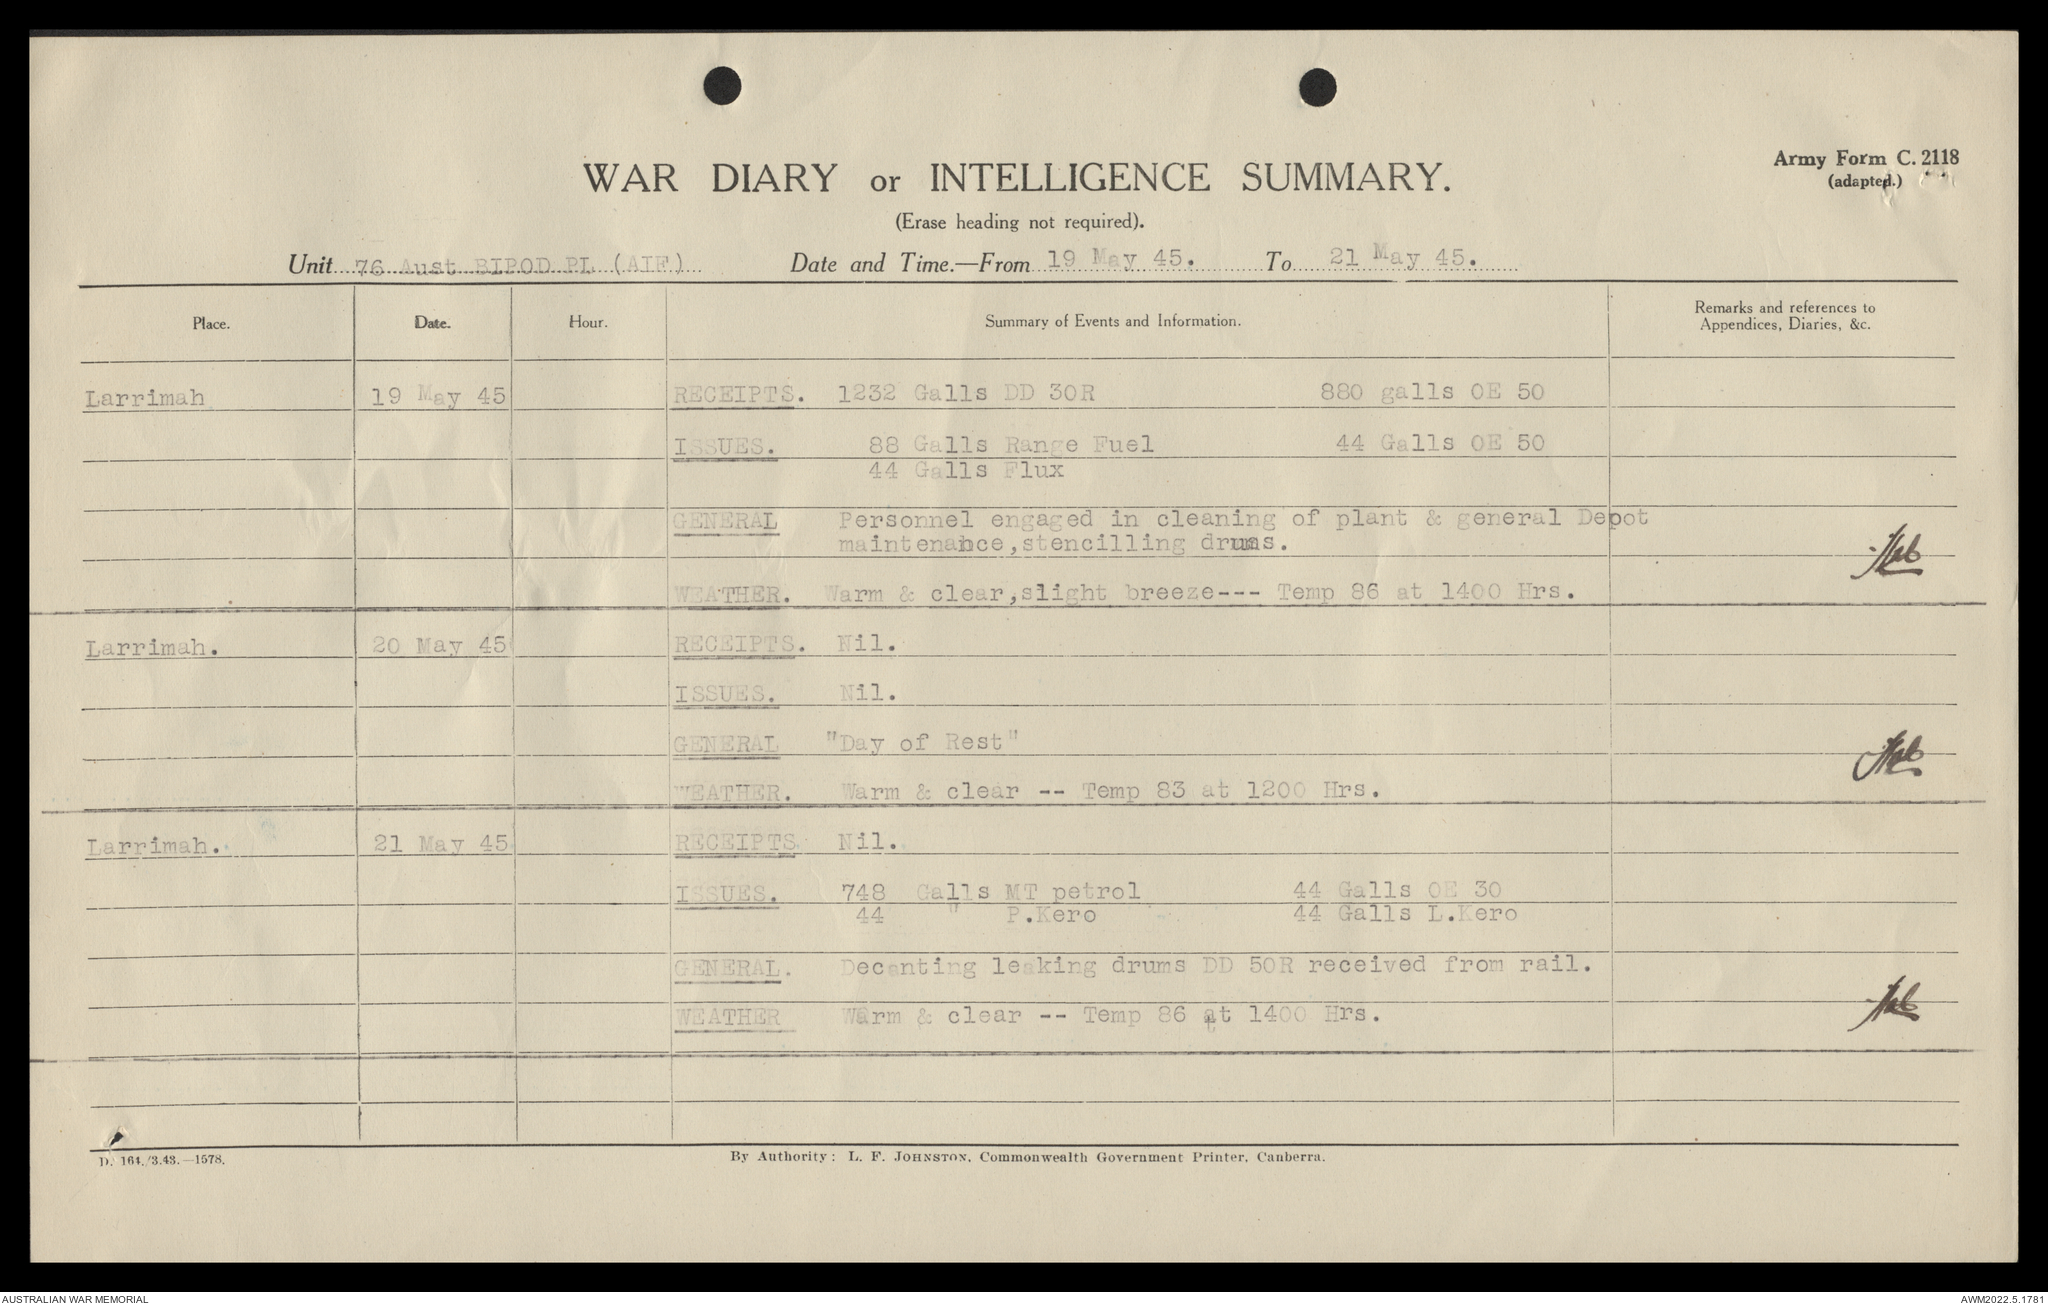 WAR DIARY or INTELLIGENCE SUMMARY.
Army Form C. 2118
(adapted.)
(Erase heading not required).
Unit 76 Aust BIPOD PL (AIF) Date and Time.—From 19 May 45. To 21 May 45.
Place. Date. Hour. Summary of Events and Information. Remarks and references to
Appendices, Diaries, &c.
Larrimah 19 May 45 RECEIPTS. 1232 Galls DD 30R 880 galls OE 50
ISSUES. 88 Galls Range Fuel 44 Galls OE 50
44 Galls Flux
GENERAL Personnel engaged in cleaning of plant & general Depot
maintenance,stencilling drums.
WEATHER. Warm & clear,slight breeze--- Temp 86 at 1400 Hrs.
Larrimah. 20 May 45 RECEIPTS. Nil.
ISSUES. Nil.
GENERAL "Day of Rest"
WEATHER. Warm & clear -- Temp 83 at 1200 Hrs.
Larrimah. 21 May 45 RECEIPTS. Nil.
ISSUES. 748 Galls MT petrol 44 Galls OE 30
44 " P.Kero 44 Galls L.Kero
GENERAL. Decanting leaking drums DD 50R received from rail.
WEATHER Warm & clear -- Temp 86 at 1400 Hrs.
D. 164./3.43.—1578.
By Authority: L. F. JOHNSTON, Commonwealth Government Printer, Canberra.
AUSTRALIAN WAR MEMORIAL
AWM2022.5.1781